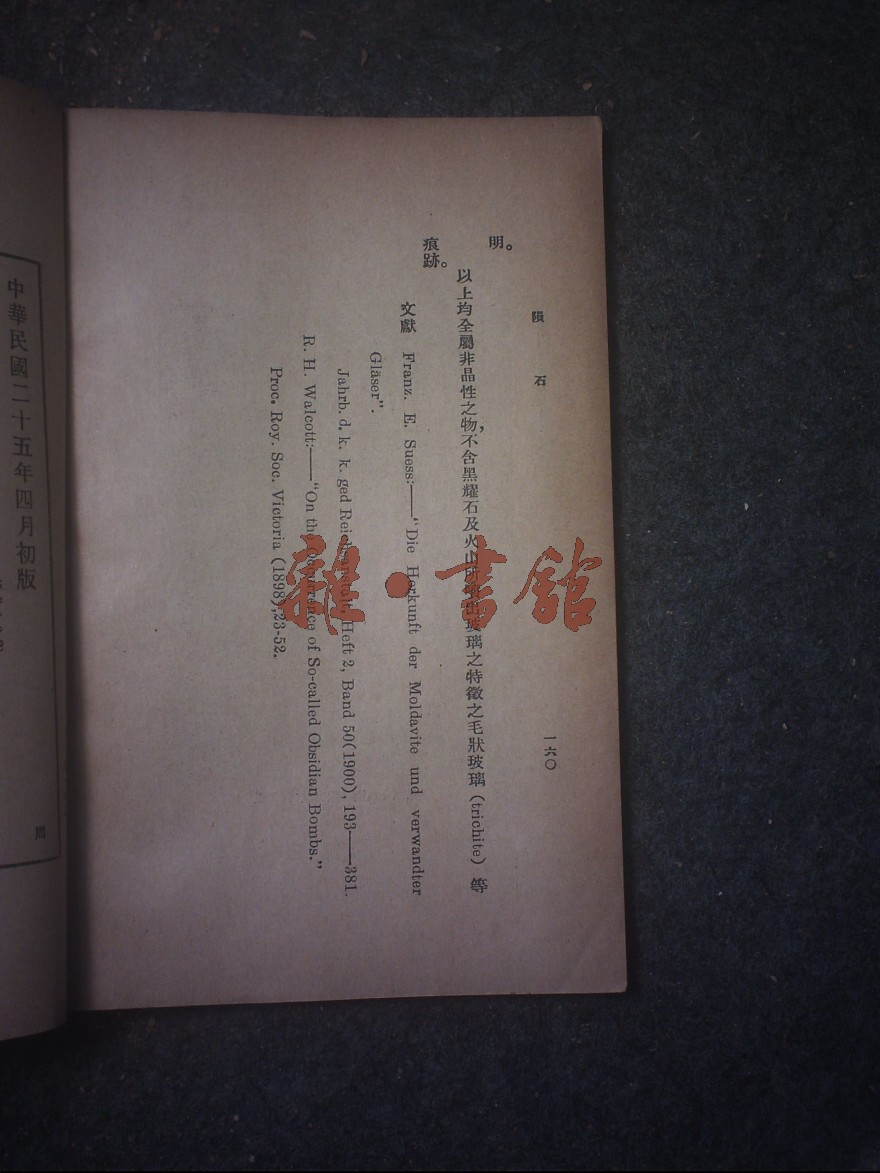 隕石
一六〇
明。
以上均全屬非晶性之物,不含黑耀石及火山所噴出玻璃之特徵之毛狀玻璃(trichite)等
痕跡。
文獻 Franz. E. Suess:——"Die Herkunft der Moldavite und verwandter
Gläser".
Jahrb. d. k. k. ged Reichsanstalt, Heft 2, Band 50(1900), 193——381.
R. H. Walcott:——"On the occurrence of So-called Obsidian Bombs."
Proc. Roy. Soc. Victoria (1898),23-52.
中華民國二十五年四月初版
雜·書館